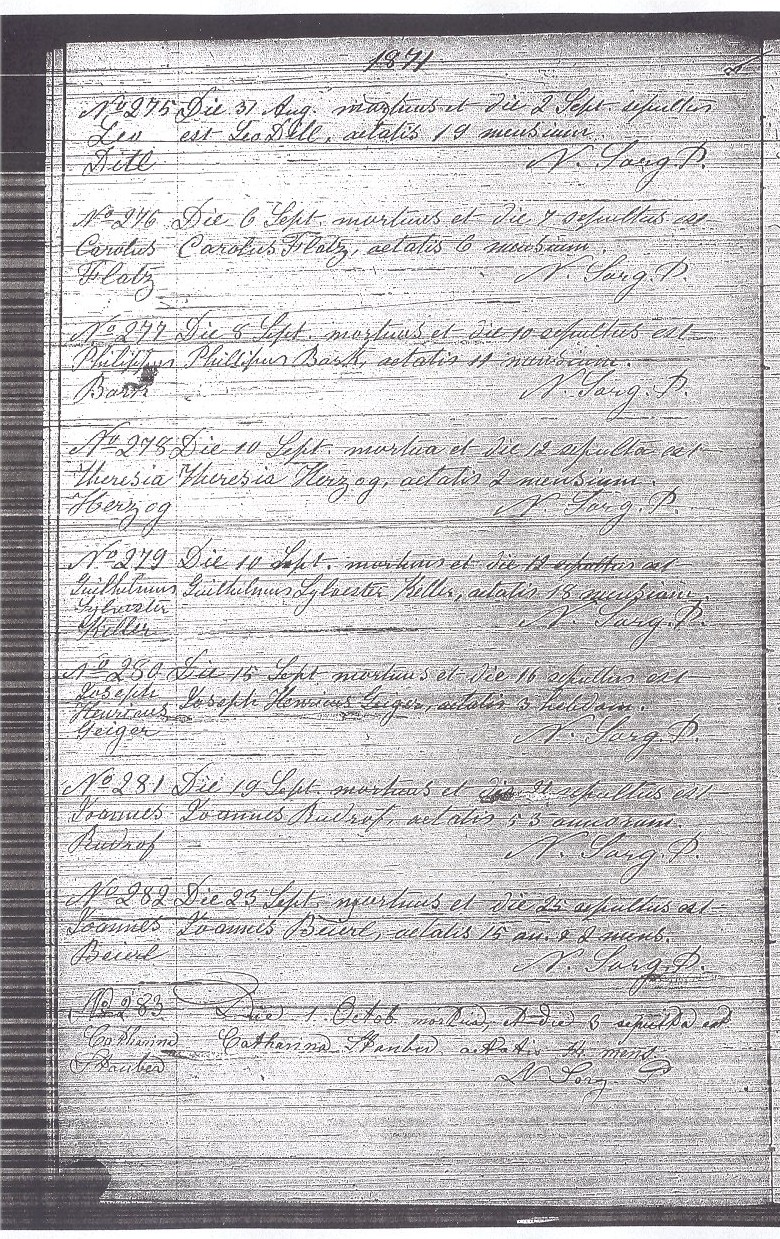 1871
No 275 Die 31 Aug. mortuus et die 2 Sept. sepultus
Leo est Leo Ditl, aetatis 19 mensium.
Ditl N. Sorg P.
No 276 Die 6 Sept. mortuus et die 7 sepultus est
Carolus Carolus Flatz, aetatis 6 mensium.
Flatz N. Sorg. P.
No 277 Die 8 Sept. mortuus et die 10 sepultus est
Philippus Phillipus Bark, aetatis 11 mensium.
Bark N. Sorg. P.
No 278 Die 10 Sept. mortua et die 12 sepulta est
Theresia Theresia Herzog, aetatis 2 mensium.
Herzog N. Sorg. P.
No 279 Die 10 Sept. mortuus et die 12 sepultus est
Guilhelmus Guilhelmus Sylvester Keller, aetatis 18 mensium.
Sylvester
Keller N. Sorg. P.
No 280 Die 15 Sept mortuus et die 16 sepultus est
Joseph
Henricus Joseph Henricus Geiger, aetatis 3 hebdom.
Geiger N. Sorg. P.
No 281 Die 19 Sept. mortuus et die 21 sepultus est
Joannes Joannes Rudrof, aetatis 53 annorum.
Rudrof N. Sorg. P.
No 282 Die 23 Sept. mortuus et die 25 sepultus est
Joannes Joannes Beierl, aetatis 15 an. & 2 mens.
Beierl N. Sorg. P.
No 283 Die 1. Octob. mortua, et die 3 sepulta est
Catharina Catharina Stauber aetatis 14 mens.
Stauber N Sorg P